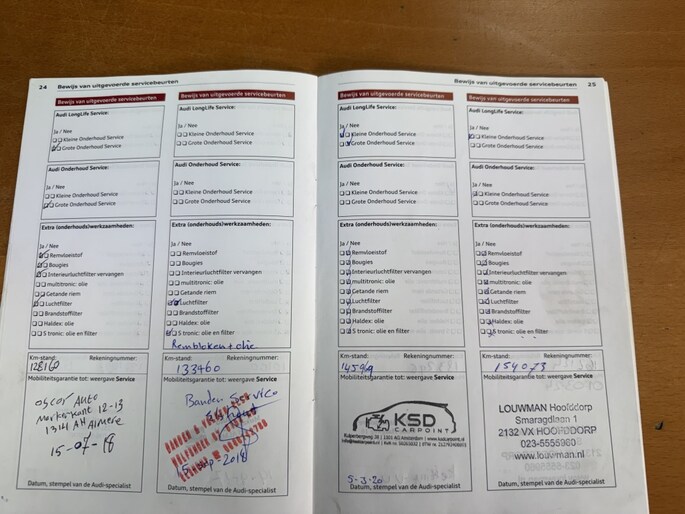 24 Bewijs van uitgevoerde servicebeurten
Bewijs van uitgevoerde servicebeurten
Audi LongLife Service:
Ja / Nee
Kleine Onderhoud Service
Grote Onderhoud Service
Audi Onderhoud Service:
Ja / Nee
Kleine Onderhoud Service
Grote Onderhoud Service
Extra (onderhouds)werkzaamheden:
Ja / Nee
Remvloeistof
Bougies
Interieurluchtfilter vervangen
multitronic: olie
Getande riem
Luchtfilter
Brandstoffilter
Haldex: olie
S tronic: olie en filter
Km-stand: Rekeningnummer:
128160
Mobiliteitsgarantie tot: weergave Service
oscar Auto
Markerkant 12-13
1314 AH Almere
15-07-18
Datum, stempel van de Audi-specialist
Bewijs van uitgevoerde servicebeurten
Audi LongLife Service:
Ja / Nee
Kleine Onderhoud Service
Grote Onderhoud Service
Audi Onderhoud Service:
Ja / Nee
Kleine Onderhoud Service
Grote Onderhoud Service
Extra (onderhouds)werkzaamheden:
Ja / Nee
Remvloeistof
Bougies
Interieurluchtfilter vervangen
multitronic: olie
Getande riem
Luchtfilter
Brandstoffilter
Haldex: olie
S tronic: olie en filter
Rembloken + olie
Km-stand: Rekeningnummer:
133460
Mobiliteitsgarantie tot: weergave Service
Banden Service
2018
Datum, stempel van de Audi-specialist
Bewijs van uitgevoerde servicebeurten 25
Bewijs van uitgevoerde servicebeurten
Audi LongLife Service:
Ja / Nee
Kleine Onderhoud Service
Grote Onderhoud Service
Audi Onderhoud Service:
Ja / Nee
Kleine Onderhoud Service
Grote Onderhoud Service
Extra (onderhouds)werkzaamheden:
Ja / Nee
Remvloeistof
Bougies
Interieurluchtfilter vervangen
multitronic: olie
Getande riem
Luchtfilter
Brandstoffilter
Haldex: olie
S tronic: olie en filter
Km-stand: Rekeningnummer:
Mobiliteitsgarantie tot: weergave Service
KSD
CARPOINT
5-3-20
Datum, stempel van de Audi-specialist
Bewijs van uitgevoerde servicebeurten
Audi LongLife Service:
Ja / Nee
Kleine Onderhoud Service
Grote Onderhoud Service
Audi Onderhoud Service:
Ja / Nee
Kleine Onderhoud Service
Grote Onderhoud Service
Extra (onderhouds)werkzaamheden:
Ja / Nee
Remvloeistof
Bougies
Interieurluchtfilter vervangen
multitronic: olie
Getande riem
Luchtfilter
Brandstoffilter
Haldex: olie
S tronic: olie en filter
Km-stand: Rekeningnummer:
154073
Mobiliteitsgarantie tot: weergave Service
LOUWMAN Hoofddorp
Smaragdlaan 1
2132 VX HOOFDDORP
023-5555980
www.louwman.nl
Datum, stempel van de Audi-specialist